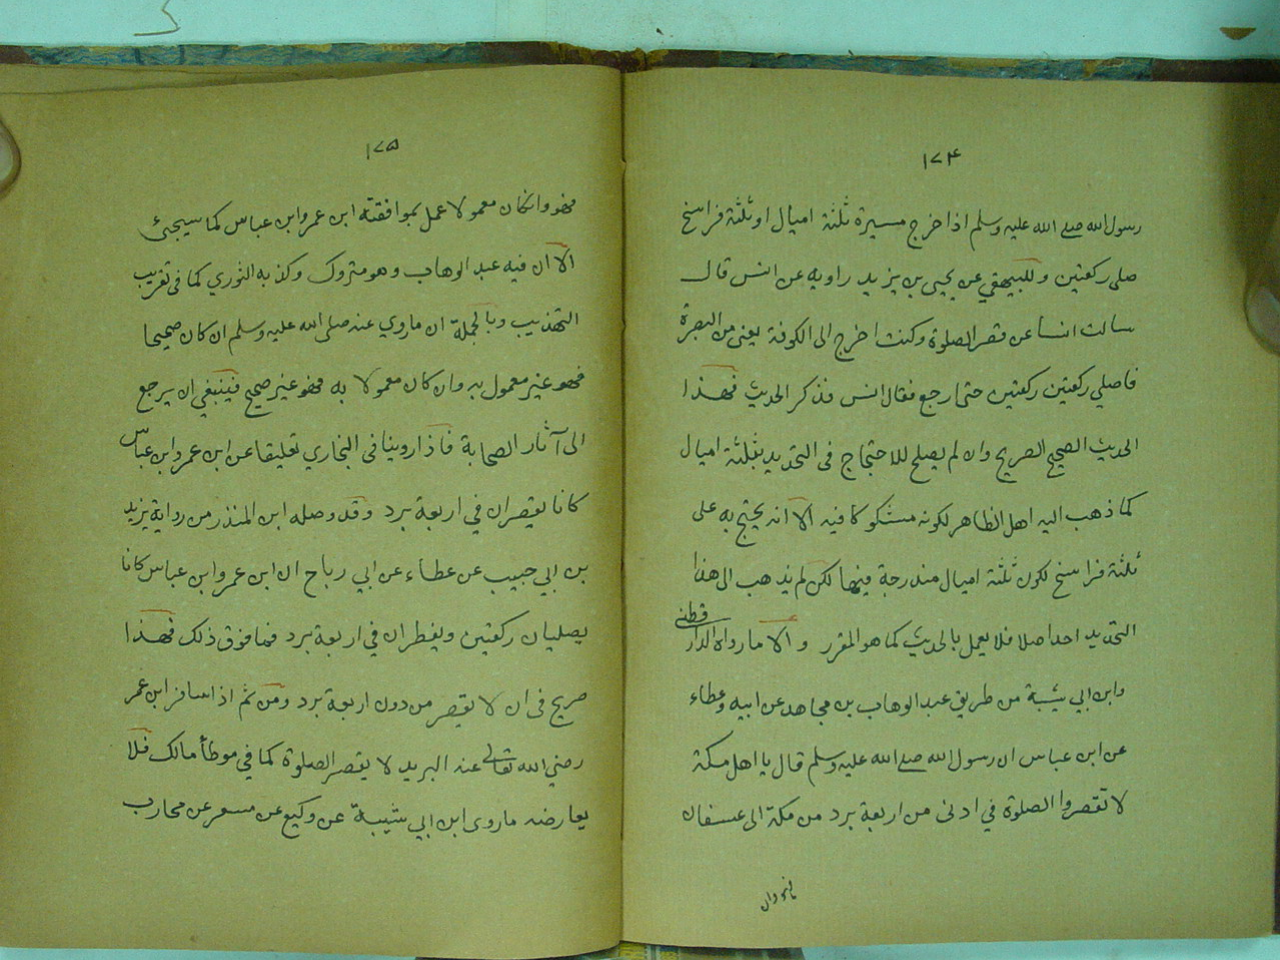 ١٧٤
رسول الله صلے الله عليہ وسلم اذا خرج مسيرة ثلثة اميال او ثلثة فراسخ
صلى ركعتين وللبيهقي عن يحيى بن يزيد راويه عن انس قال
سالت انسا عن قصر الصلوة وكنت اخرج الى الكوفة يعنى من البصرة
فاصلي ركعتين ركعتين حتى ارجع فقال انس فذكر الحديث فهذا
الحديث الصحيح الصريح وان لم يصلح للاحتجاج فى التحديد بثلثة اميال
كما ذهب اليه اهل الظاهر لكونه مشكوكا فيه الا انه يحتج به على
ثلثة فراسخ لكون ثلثة اميال مندرجة فيها لكن لم يذهب الى هذا
التحديد احد اصلا فلا يعمل بالحديث كما هو المقرر و الا ما رواه الدارقطنے
وابن ابي شيبة من طريق عبد الوهاب بن مجاهد عن ابيه وعطاء
عن ابن عباس ان رسول الله صلے الله عليہ وسلم قال يا اهل مكة
لا تقصروا الصلوة في ادنى من اربعة برد من مكة الى عسفان
فهو وان
١٧٥
فهو وانكان معمولا عمل بموافقته ابن عمر وابن عباس كما سيجئ
الا ان فيه عبد الوهاب وهو متروك وكذبه الثوري كما فى تقريب
التهذيب وبالجملة ان ماروي عنه صلى الله عليہ وسلم ان كان صحيحا
فهو غير معمول به وان كان معمولا به فهو غير صحيح فينبغي ان يرجع
الى آثار الصحابة فاذا روينا فى البخاري تعليقا عن ابن عمر وابن عباس
كانا يقصران في اربعة برد وقد وصله ابن المنذر من رواية يزيد
بن ابي حبيب عن عطاء عن ابي رباح ان ابن عمر وابن عباس كانا
يصليان ركعتين ويفطران في اربعة برد فما فوق ذلك فهذا
صريح فى ان لا يقصر من دون اربعة برد ومن ثم اذا سافر ابن عمر
رضي الله تعالى عنه البريد لا يقصر الصلوة كما في موطأ مالك فلا
يعارضه ماروى ابن ابي شيبة عن وكيع عن مسعر عن محارب